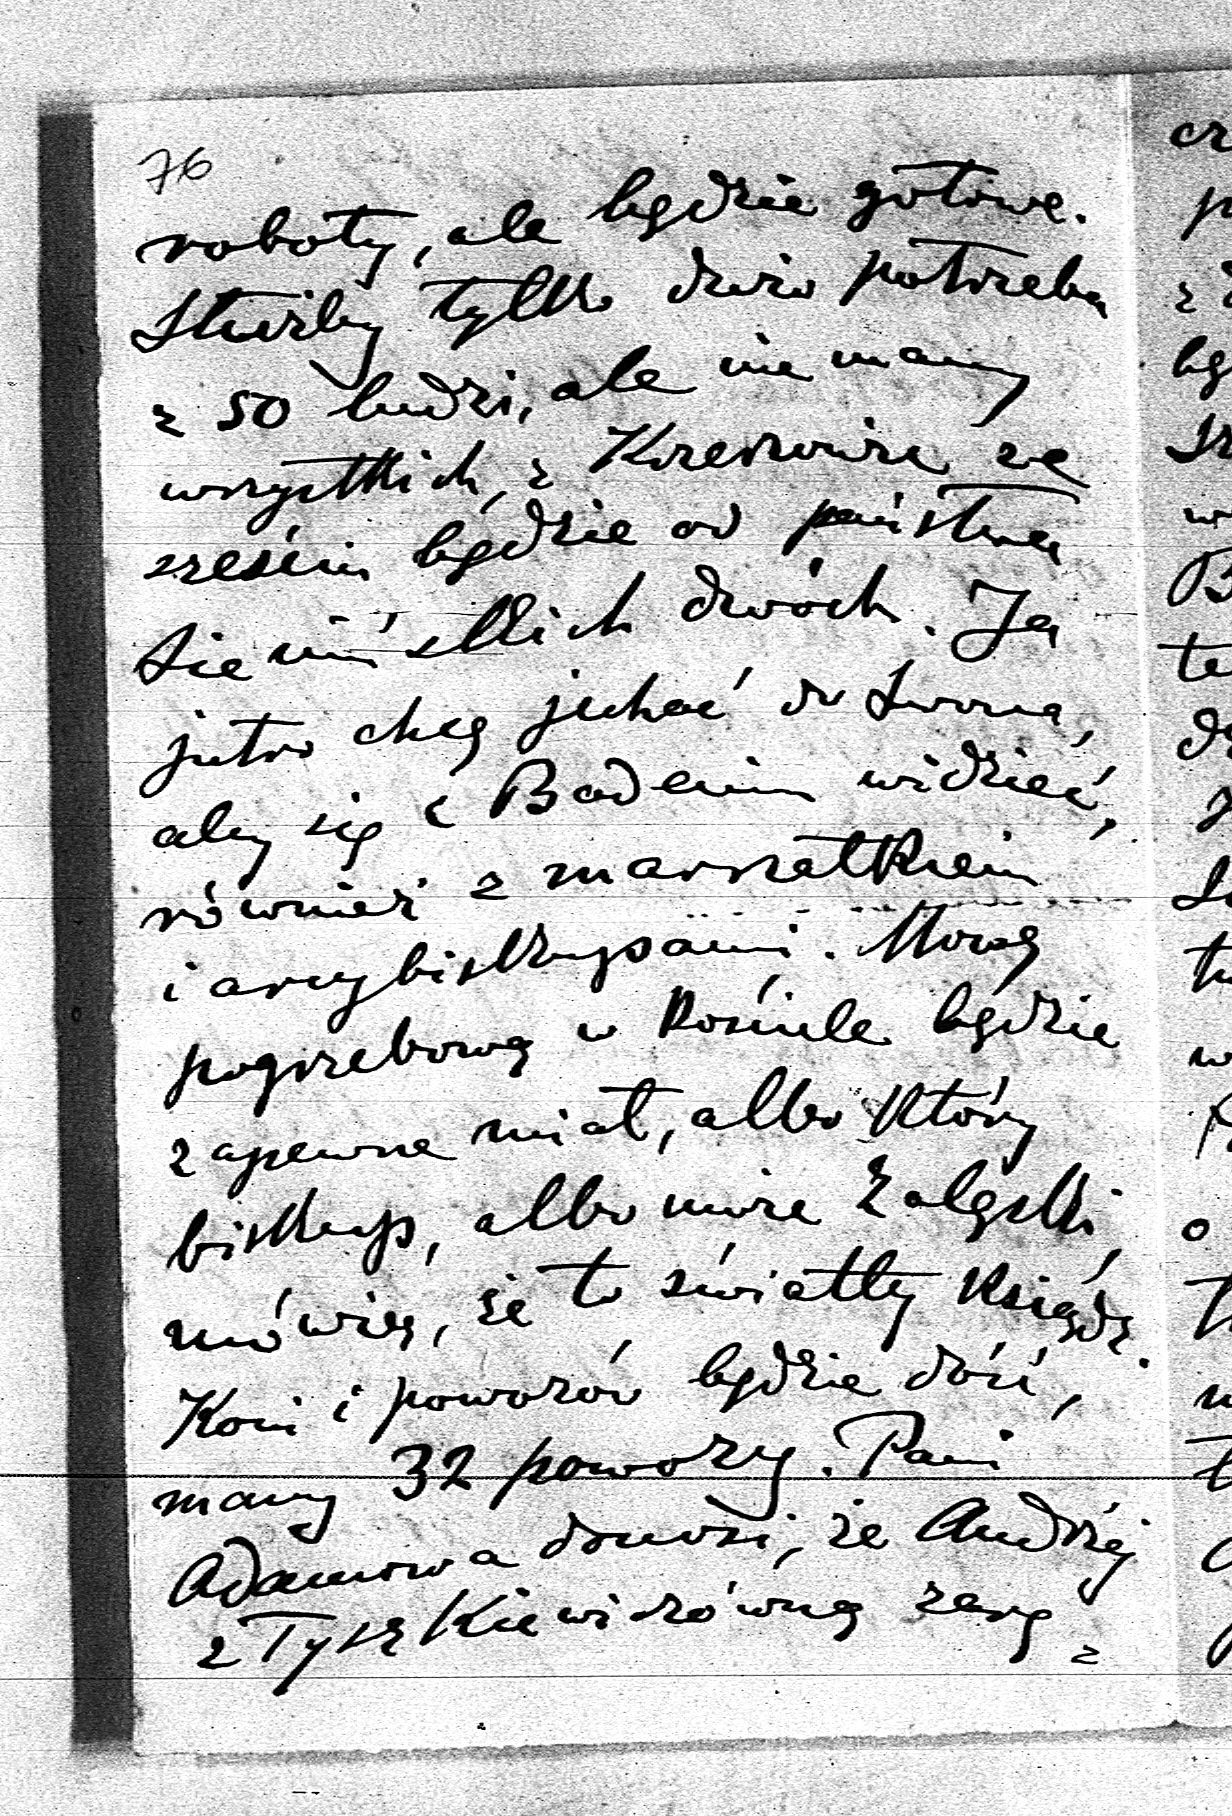 76
roboty, ale będzie gotowe.
Służby tylko dużo potrzeba
z 50 ludzi, ale nie mamy
wszystkich, z Krzeszowic ze
sześciu będzie od państwa
Siemińskich dwóch. Ja
jutro chcę jechać do Lwowa,
aby się z Badenim widzieć,
również z marszałkiem
i arcybiskupami. Mowę
pogrzebową w kościele będzie
zapewne miał, albo który
biskup, albo może Załęski,
mówią, że to światły ksiądz.
Koni i powozów będzie dość,
mamy 32 powozy. Pani
Adamowa donosi, że Andrzej
z Tyszkiewiczówną zarę